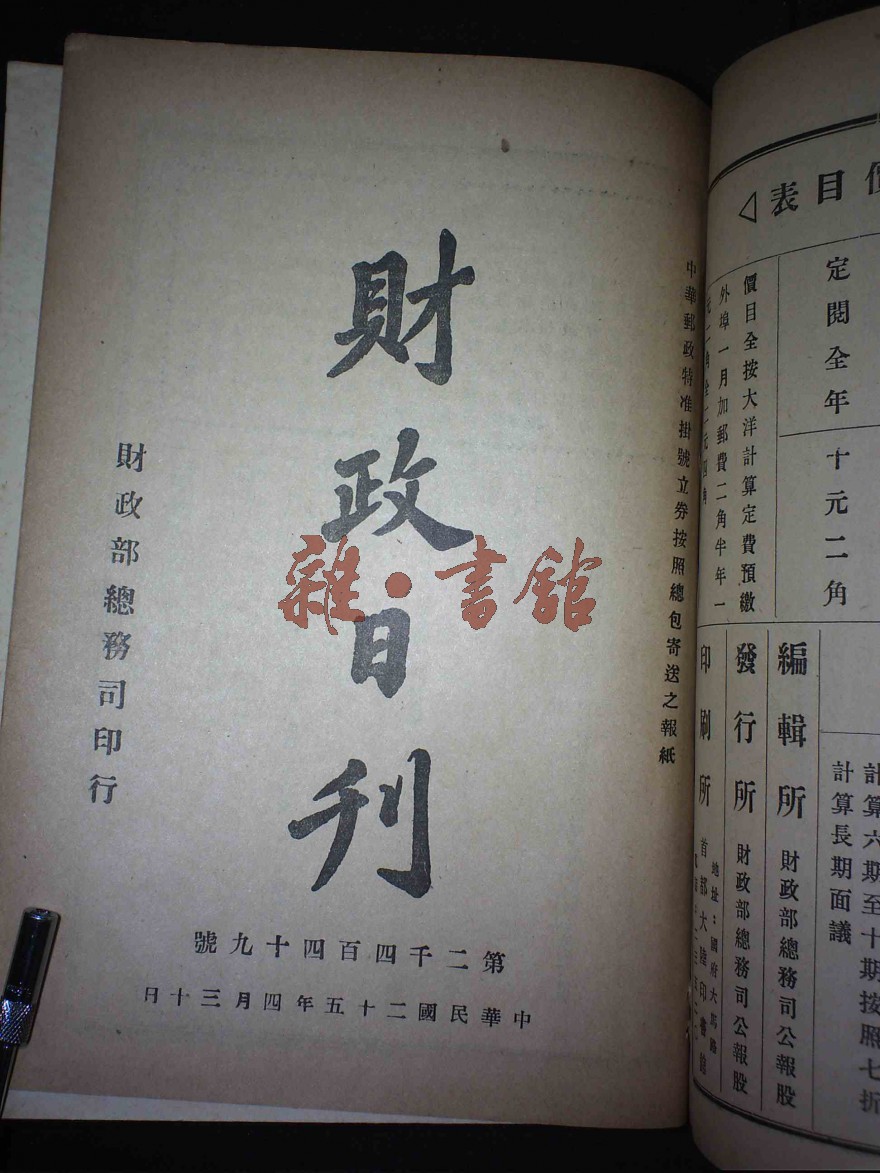 價目表◁
定閱全年
十元二角
價目全按大洋計算定費預繳
外埠一月加郵費二角半年一
元二角全年二元四角
計算六期至十期按照七折
計算長期面議
編輯所 財政部總務司公報股
發行所 財政部總務司公報股
印刷所 首都大陸印書館
地址：國府大馬路
中華郵政特准掛號立券按照總包寄送之報紙
財政日刊
財政部總務司印行
第二千四百四十九號
中華民國二十五年四月三十日
雜·書館